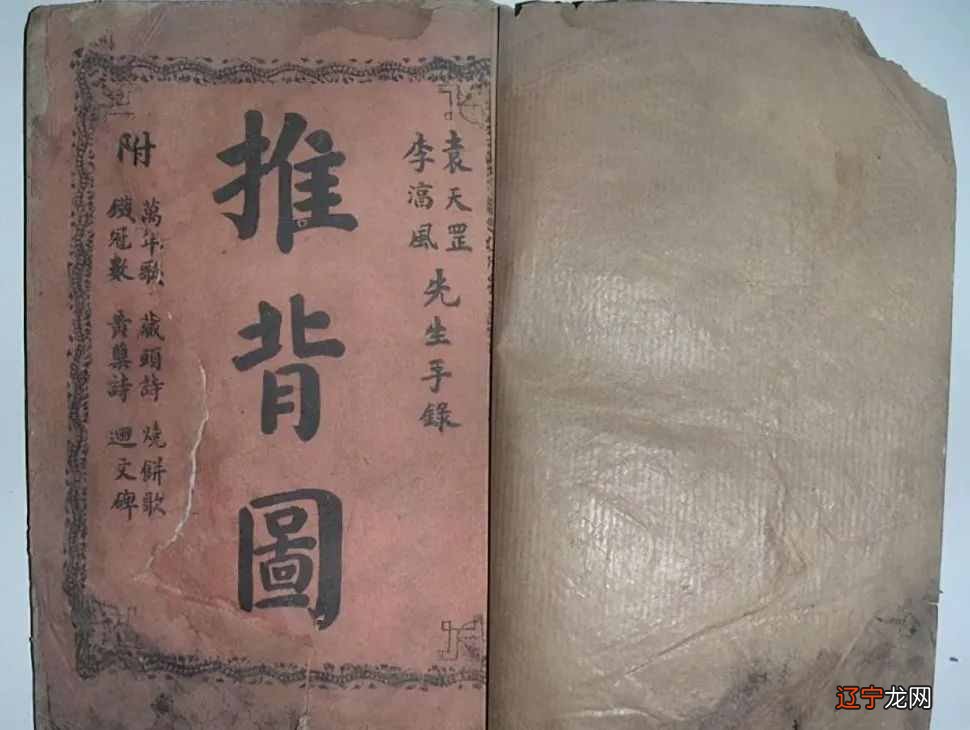 袁天罡
李淳風
先生手錄
推背圖
附
萬年歌 藏頭詩 燒餅歌
鐵冠數 黃蘗詩 迴文碑
辽宁龙网